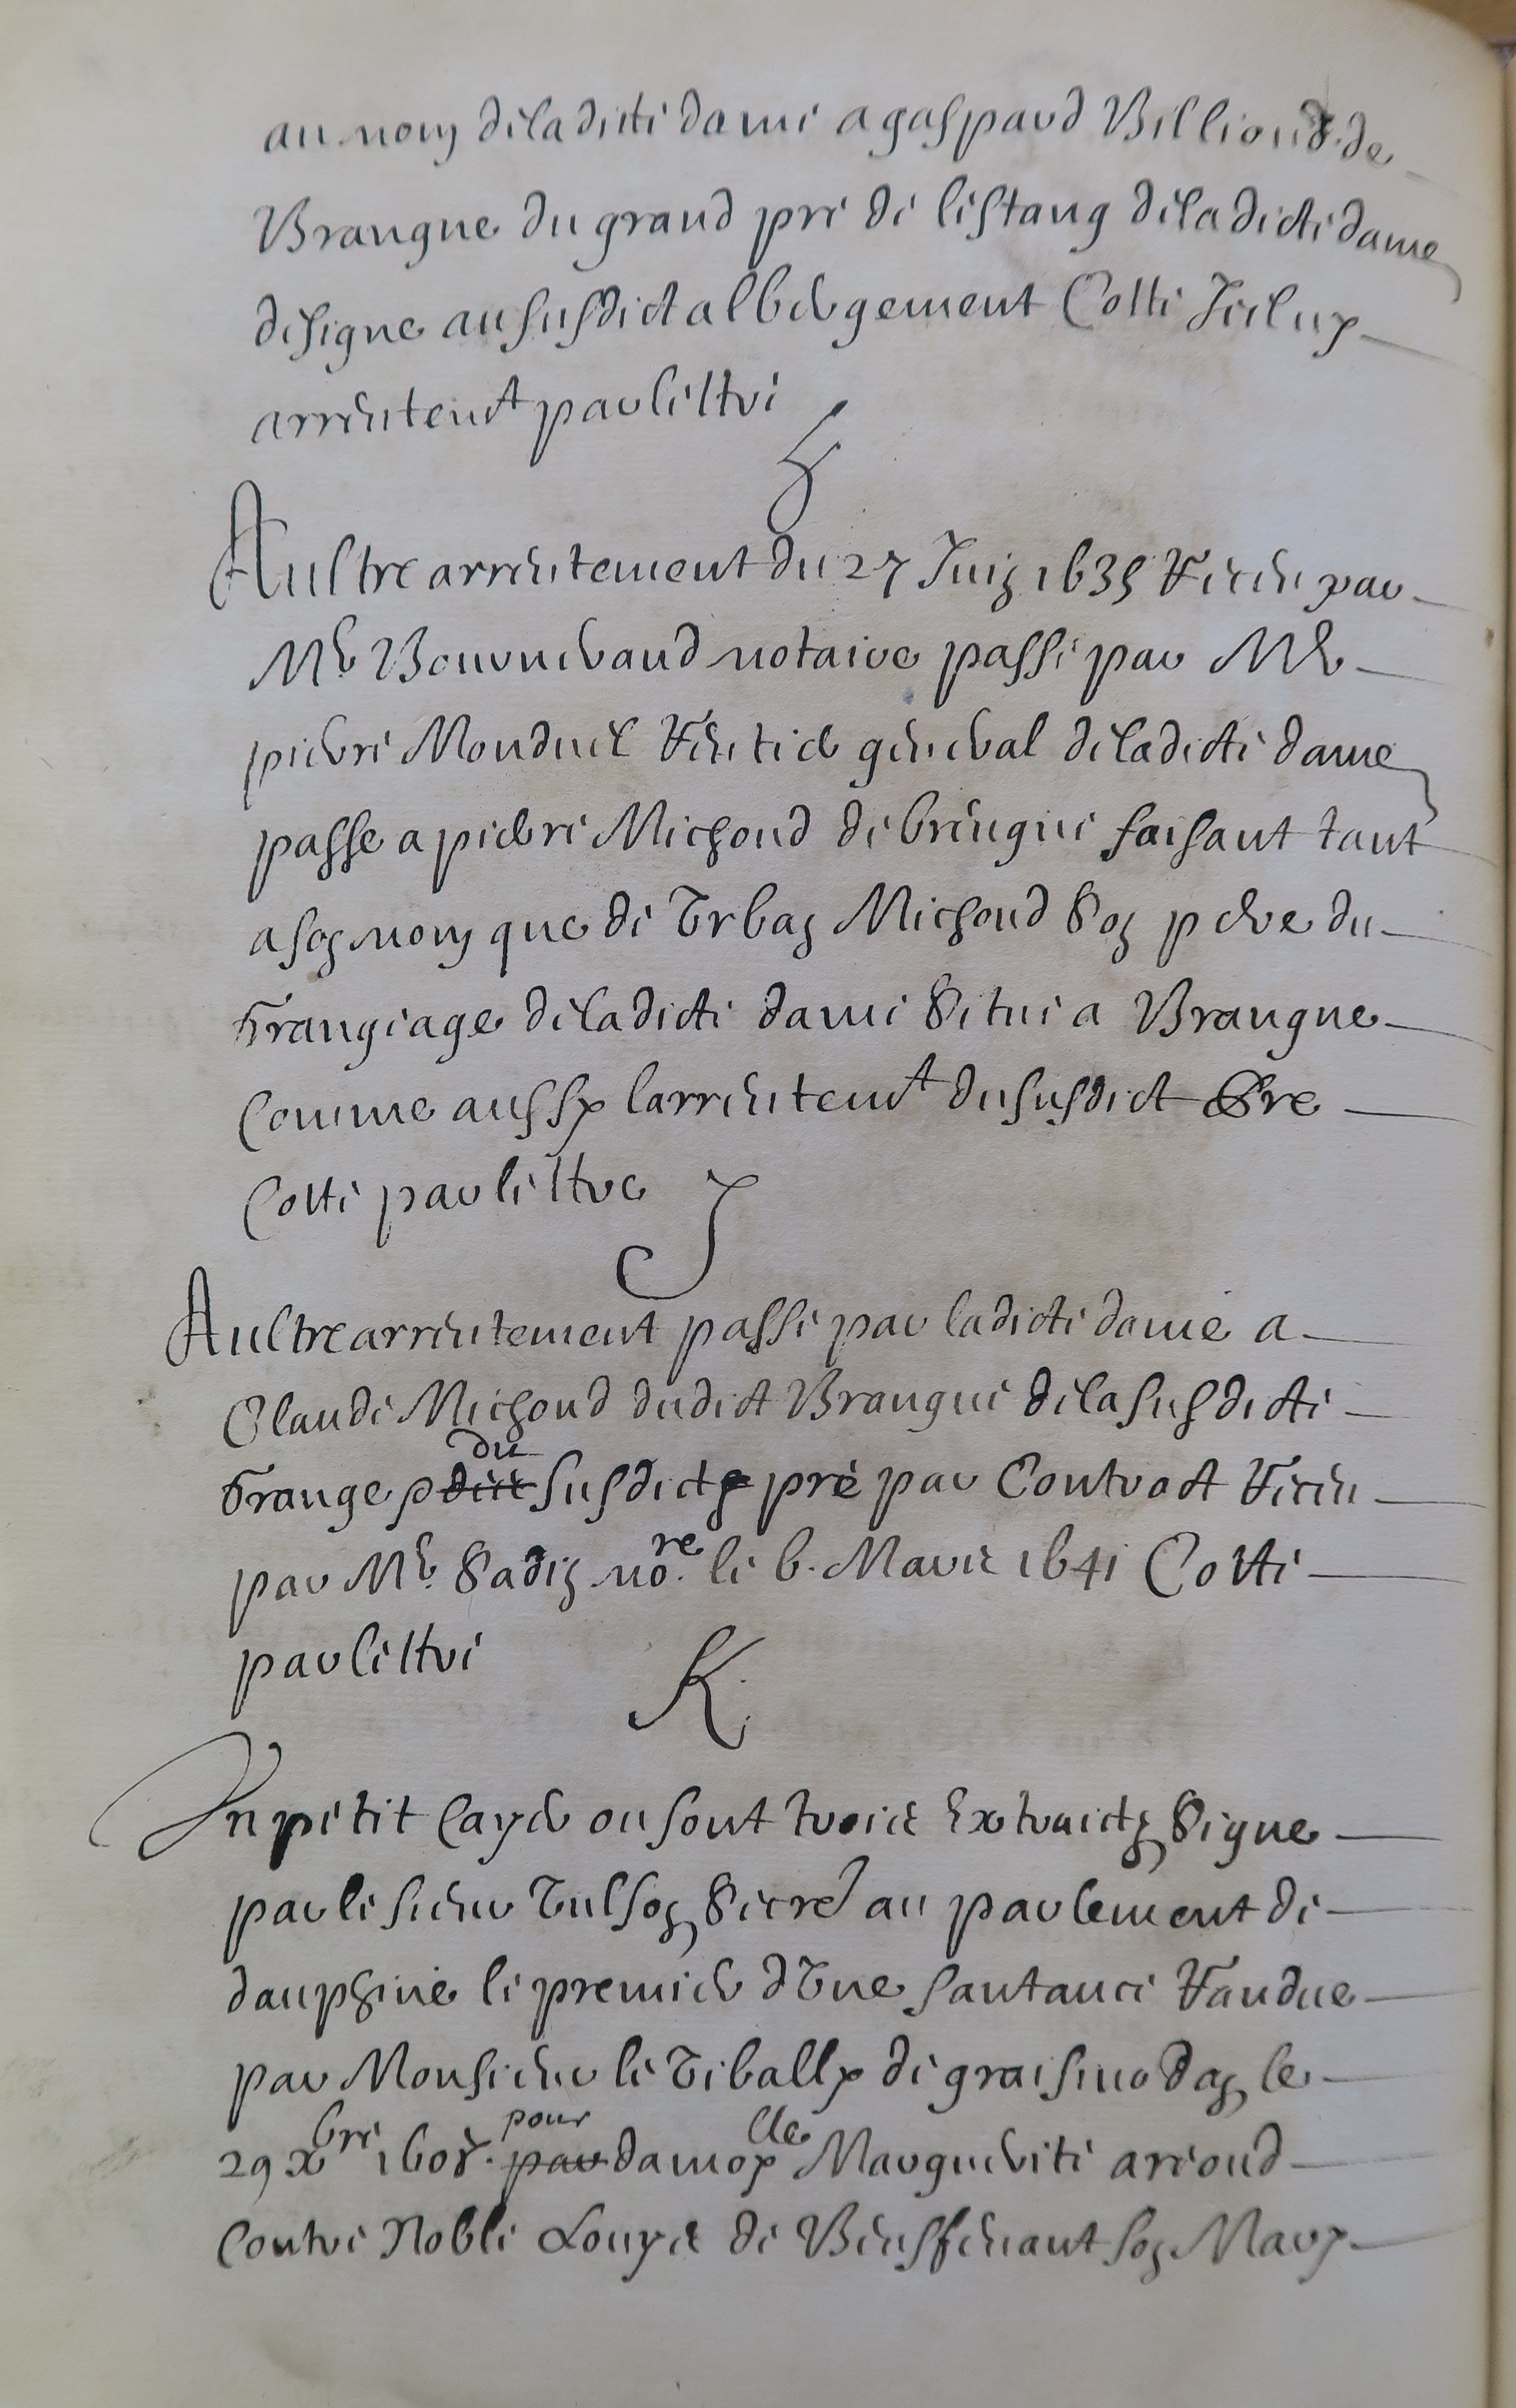 au nom de ladicte dame a gaspard Billioud de
Brangue du grand pre de lestang de ladicte dame
designe au susdict albergement Cotte Iceluy
arrentemt par lettre
H
Aultre arrentement du 27 Juin 1635 Receu par
Me Bouvueraud notaire passé par Me
pierre Monduel Rentier general de ladicte dame
passe a pierre Michoud de brengue faisant tant
a son nom que de Urban Michoud Son pere du
Grangeage de ladicte dame Situé a Brangue
Comme aussy larrentemt du susdict Pre
Cotté par lettre
J
Aultre arrentement passé par ladicte dame a
Claude Michoud dudict Brangue de la susdicte
Grange du susdict pré par Contract Receu
par Me Sadin nore le 6. Mars 1641 Cotté
par lettre
K
Un petit Cayer ou sont trois Extraictz Signe
par le sieur Tulson Secreˀ au parlement de
dauphiné le premier dUne santance Randue
par Monsieur le Vibally de graisivodan le
29 xbre 1608. pour damoylle Marguerite arcoud
Contre Noble Louys de Vinssenant son Mary